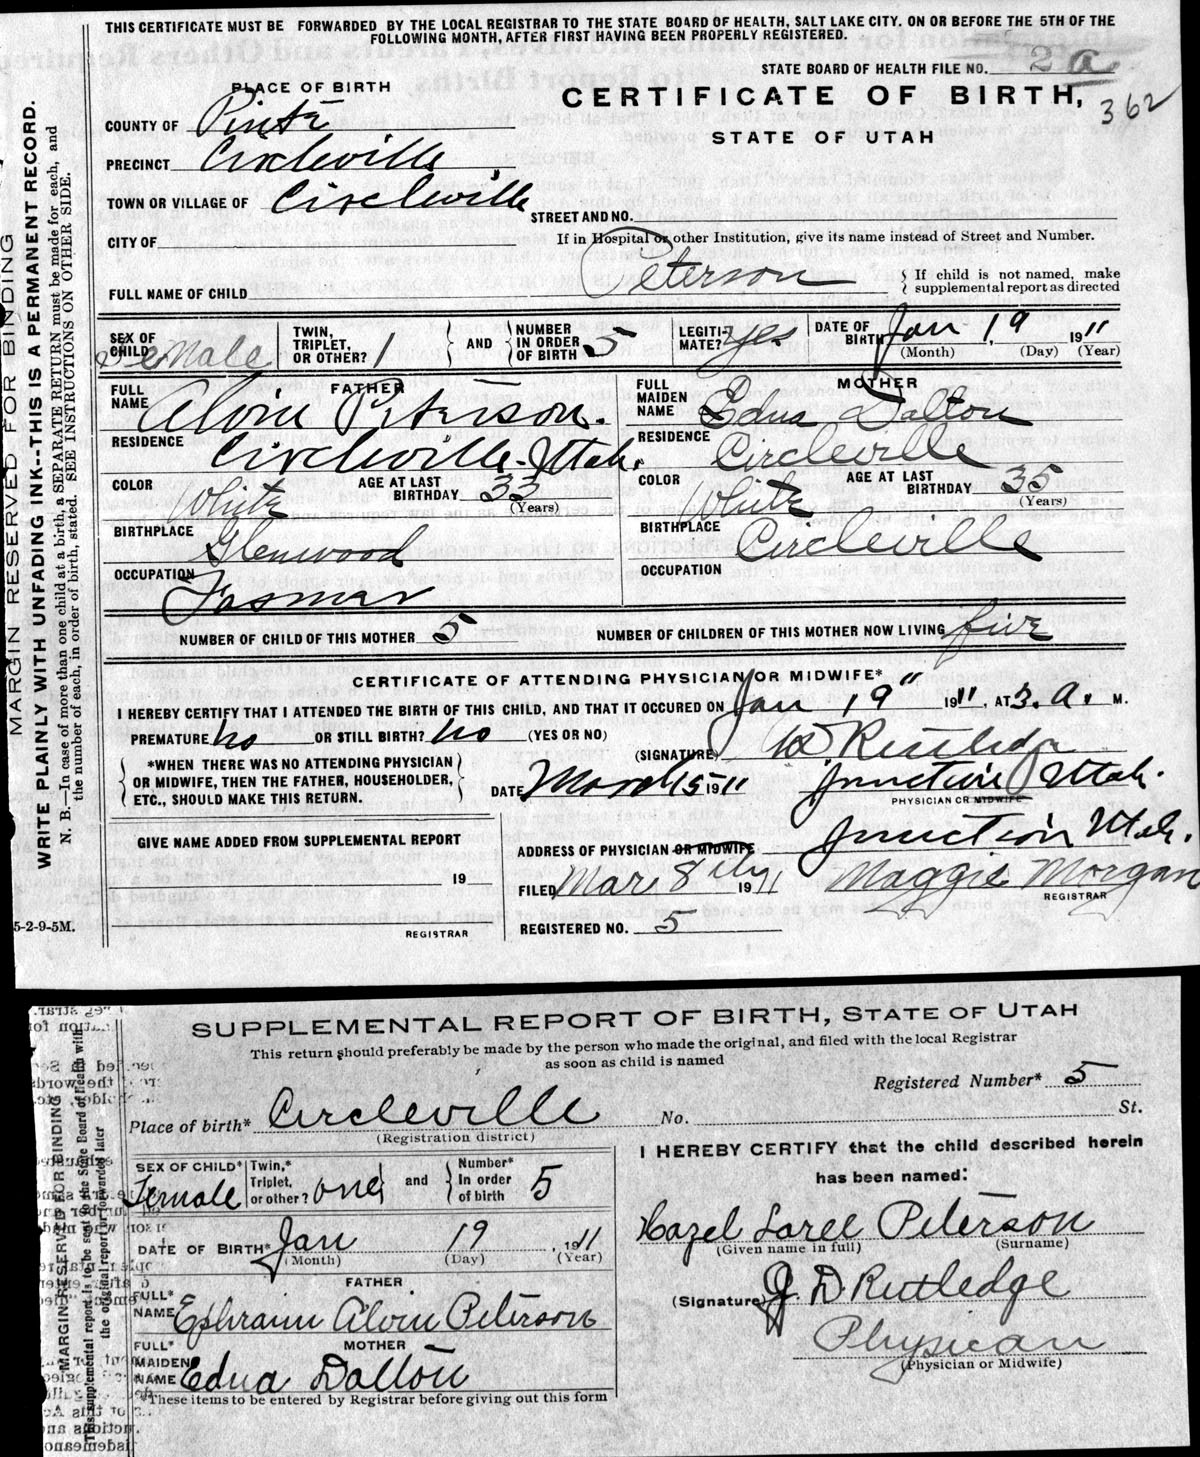 THIS CERTIFICATE MUST BE FORWARDED BY THE LOCAL REGISTRAR TO THE STATE BOARD OF HEALTH, SALT LAKE CITY, ON OR BEFORE THE 5TH OF THE
FOLLOWING MONTH, AFTER FIRST HAVING BEEN PROPERLY REGISTERED.
STATE BOARD OF HEALTH FILE NO. 2 a
362
PLACE OF BIRTH
CERTIFICATE OF BIRTH,
STATE OF UTAH
COUNTY OF
PRECINCT Circleville
TOWN OR VILLAGE OF Circleville
STREET AND NO.
CITY OF
If in Hospital or other Institution, give its name instead of Street and Number.
FULL NAME OF CHILD Peterson
If child is not named, make
supplemental report as directed
SEX OF CHILD Female
TWIN, TRIPLET, OR OTHER? 1
AND
NUMBER IN ORDER OF BIRTH 5
LEGITIMATE? yes
DATE OF BIRTH Jan 19, 1911
(Month) (Day) (Year)
FATHER
FULL NAME Alvin Peterson.
RESIDENCE Circleville. Utah.
COLOR White
AGE AT LAST BIRTHDAY 33
(Years)
BIRTHPLACE Glenwood
OCCUPATION Farmer
MOTHER
FULL MAIDEN NAME Edna Dalton
RESIDENCE Circleville
COLOR White
AGE AT LAST BIRTHDAY 35
(Years)
BIRTHPLACE Circleville
OCCUPATION
NUMBER OF CHILD OF THIS MOTHER 5
NUMBER OF CHILDREN OF THIS MOTHER NOW LIVING five
CERTIFICATE OF ATTENDING PHYSICIAN OR MIDWIFE*
I HEREBY CERTIFY THAT I ATTENDED THE BIRTH OF THIS CHILD, AND THAT IT OCCURED ON Jan 19" 1911, AT 3. a. M.
PREMATURE no OR STILL BIRTH? no (YES OR NO)
*WHEN THERE WAS NO ATTENDING PHYSICIAN
OR MIDWIFE, THEN THE FATHER, HOUSEHOLDER,
ETC., SHOULD MAKE THIS RETURN.
(SIGNATURE) Rutledge
Junction Utah.
PHYSICIAN OR MIDWIFE
DATE March 5 1911
ADDRESS OF PHYSICIAN OR MIDWIFE Junction Utah.
GIVE NAME ADDED FROM SUPPLEMENTAL REPORT
19
REGISTRAR
FILED Mar 8 1911
Maggie Morgan
REGISTRAR
REGISTERED NO. 5
MARGIN RESERVED FOR BINDING
WRITE PLAINLY WITH UNFADING INK--THIS IS A PERMANENT RECORD.
N. B.—In case of more than one child at a birth, a SEPARATE RETURN must be made for each, and
the number of each, in order of birth, stated. SEE INSTRUCTIONS ON OTHER SIDE.
5-2-9-5M.
SUPPLEMENTAL REPORT OF BIRTH, STATE OF UTAH
This return should preferably be made by the person who made the original, and filed with the local Registrar
as soon as child is named
Registered Number* 5
Place of birth* Circleville No. St.
(Registration district)
SEX OF CHILD* Female
Twin,* Triplet, or other? one
and
Number* In order of birth 5
DATE OF BIRTH* Jan 19, 1911
(Month) (Day) (Year)
FATHER
FULL* NAME Ephraim Alvin Peterson
MOTHER
FULL* MAIDEN NAME Edna Dalton
*These items to be entered by Registrar before giving out this form
I HEREBY CERTIFY that the child described herein
has been named:
Hazel Laree Peterson
(Given name in full) (Surname)
(Signature) J. D Rutledge
Physican
(Physician or Midwife)
MARGIN RESERVED FOR BINDING
This supplemental report is to be sent to the State Board of Health with
the original report or forwarded later